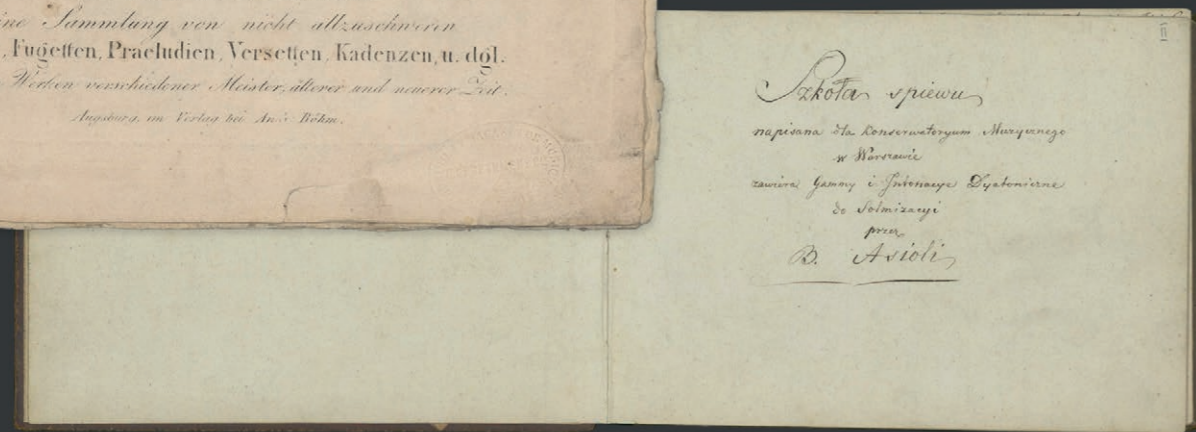 ine Sammlung von nicht allzuschweren
, Fugetten, Praeludien, Versetten, Kadenzen, u. dgl.
Werken verschiedener Meister, älterer und neuerer Zeit.
Augsburg, im Verlag bei Ant: Böhm.
II
Szkoła spiewu
napisana dla Konserwatoryum Muzycznego
w Warszawie
zawiera Gammy i Intonacye Dyatoniczne
do Solmizacyi
przez
B. Asioli